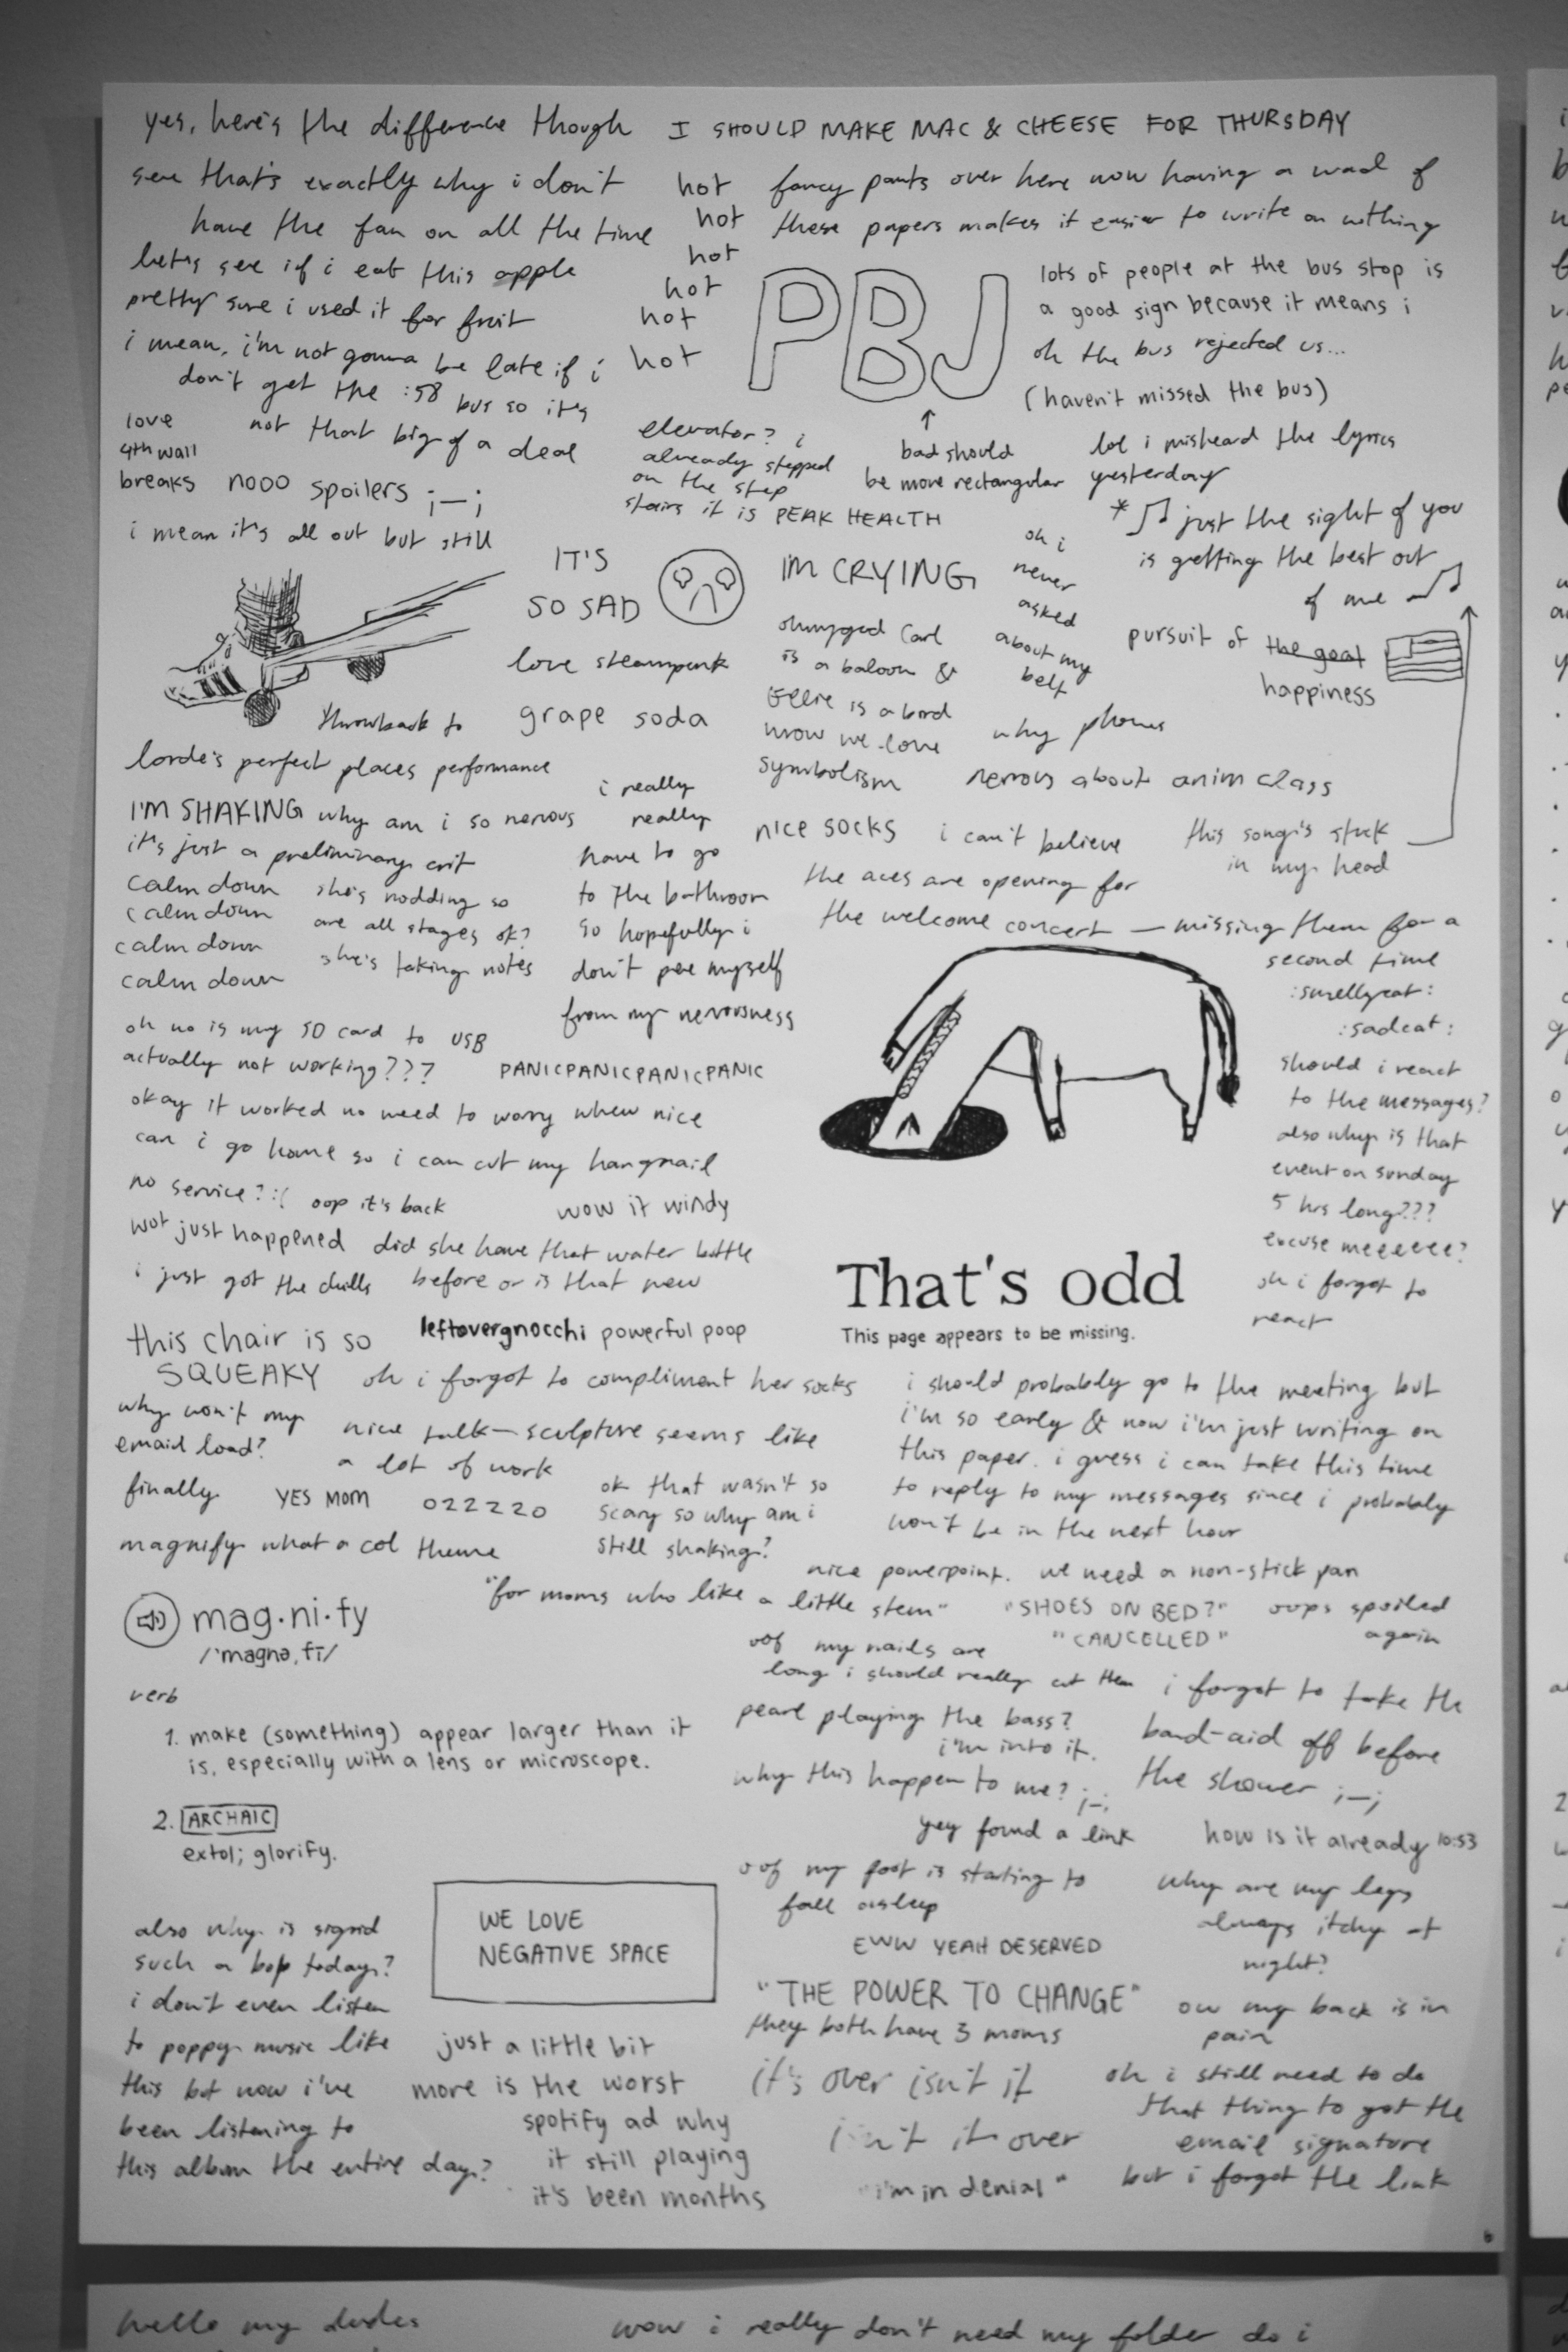 yes, here's the difference though
I SHOULD MAKE MAC & CHEESE FOR THURSDAY
see that's exactly why i don't
have the fan on all the time
hot
hot
hot
hot
hot
hot
fancy pants over here now having a wad of
these papers makes it easier to write on nothing
let's see if i eat this apple
pretty sure i used it for fruit
i mean, i'm not gonna be late if i
don't get the :58 bus so it's
not that big of a deal
PBJ
↑
bad should
be more rectangular
lots of people at the bus stop is
a good sign because it means i
oh the bus rejected us...
(haven't missed the bus)
love
4th wall
breaks
nooo spoilers ;_;
i mean it's all out but still
elevator? i
already stepped
on the step
stairs it is PEAK HEALTH
lol i misheard the lyrics
yesterday
*♫ just the sight of you
is getting the best out
of me ♫
IT'S
SO SAD
I'M CRYING
oh i
never
asked
about my
belt
love steampunk
ohmygod Carl
is a baloon &
Ellie is a bird
wow we love
symbolism
pursuit of the goat
happiness
throwback to
grape soda
why phones
lorde's perfect places performance
nervous about anim class
I'M SHAKING why am i so nervous
it's just a preliminary crit
calm down
calm down
calm down
calm down
she's nodding so
are all stages ok?
she's taking notes
i really
really
have to go
to the bathroom
so hopefully i
don't pee myself
from my nervousness
nice socks
i can't believe
this song's stuck
in my head
the aces are opening for
the welcome concert — missing them for a
second time
:smellycat:
:sadcat:
should i react
to the messages?
also why is that
event on sunday
5 hrs long???
excuse meeeeee?
oh i forgot to
react
oh no is my SD card to USB
actually not working???
PANICPANICPANICPANIC
okay it worked no need to worry whew nice
can i go home so i can cut my hangnail
no service? :( oop it's back
wow it windy
wot just happened
i just got the chills
did she have that water bottle
before or is that new
That's odd
This page appears to be missing.
this chair is so
SQUEAKY
leftovergnocchi powerful poop
oh i forgot to compliment her socks
why won't my
email load?
finally
nice talk — sculpture seems like
a lot of work
YES MOM
022220
ok that wasn't so
scary so why am i
still shaking?
i should probably go to the meeting but
i'm so early & now i'm just writing on
this paper. i guess i can take this time
to reply to my messages since i probably
won't be in the next hour
magnify what a col theme
nice powerpoint.
we need a non-stick pan
"for moms who like a little stem"
"SHOES ON BED?"
"CANCELLED"
oops spoiled
again
mag·ni·fy
/ˈmagnəˌfī/
verb
1. make (something) appear larger than it
is, especially with a lens or microscope.
2. ARCHAIC
extol; glorify.
oof my nails are
long i should really cut them
pearl playing the bass?
i'm into it.
why this happen to me? ;_;
i forgot to take the
band-aid off before
the shower ;_;
yey found a link
how is it already 10:53
oof my foot is starting to
fall asleep
why are my legs
always itchy at
night?
EWW YEAH DESERVED
also why is sigrid
such a bop today?
i don't even listen
to poppy music like
this but now i've
been listening to
this album the entire day?
WE LOVE
NEGATIVE SPACE
just a little bit
more is the worst
spotify ad why
it still playing
it's been months
"THE POWER TO CHANGE"
they both have 3 moms
it's over isn't it
isn't it over
"i'm in denial"
ow my back is in
pain
oh i still need to do
that thing to get the
email signature
but i forgot the link
6
hello my dudes
wow i really don't need my folder do i